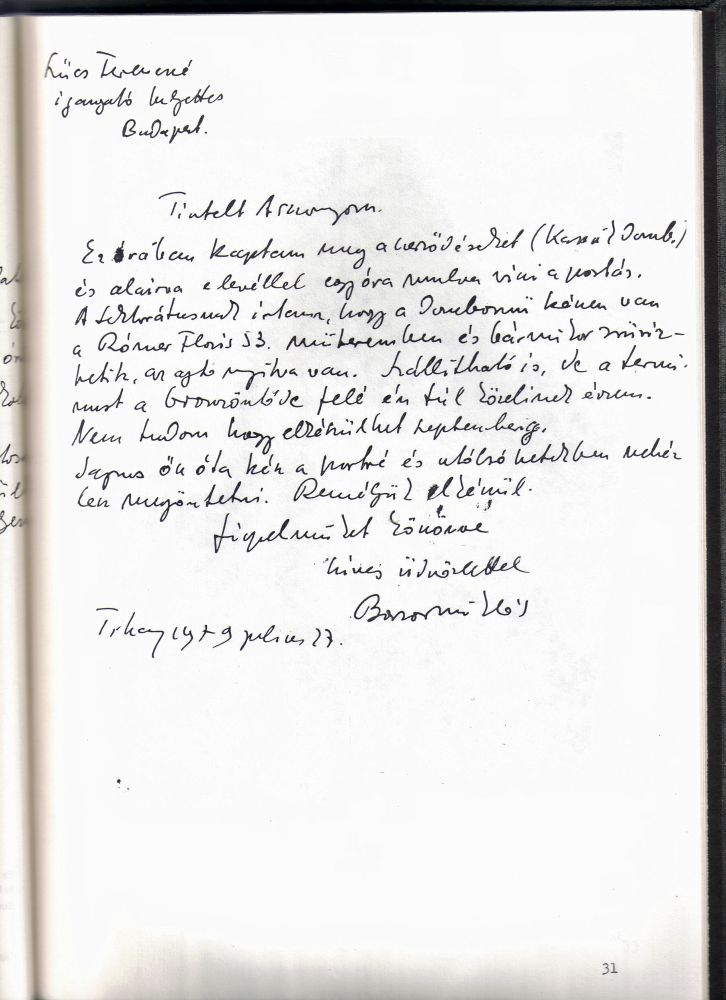 Szücs Ferencné
igazgató helyettes
Budapest.
Tisztelt Asszonyom.
Ez órában kaptam meg a szerződéseket (Kassák Domb.)
és aláírva e levéllel egy óra mulva viszi a postás.
A Lektorátusnak írtam, hogy a Dombormű készen van
a Rómer Flóris 53. műteremben és bármikor zsűriz-
hetik, az ajtó nyitva van. Szállítható is, de a termi-
nust a bronzöntöde felé én túl közelinek érzem.
Nem tudom hogy elkészülhet szeptemberig.
Sajnos ők óta kész a portré és utólsó hetekben nehéz
lesz megöntetni. Reméljük elkészül.
figyelmüket köszönve
szives üdvözlettel
Borsos Miklós
Tihany 1979 julius 27.
31